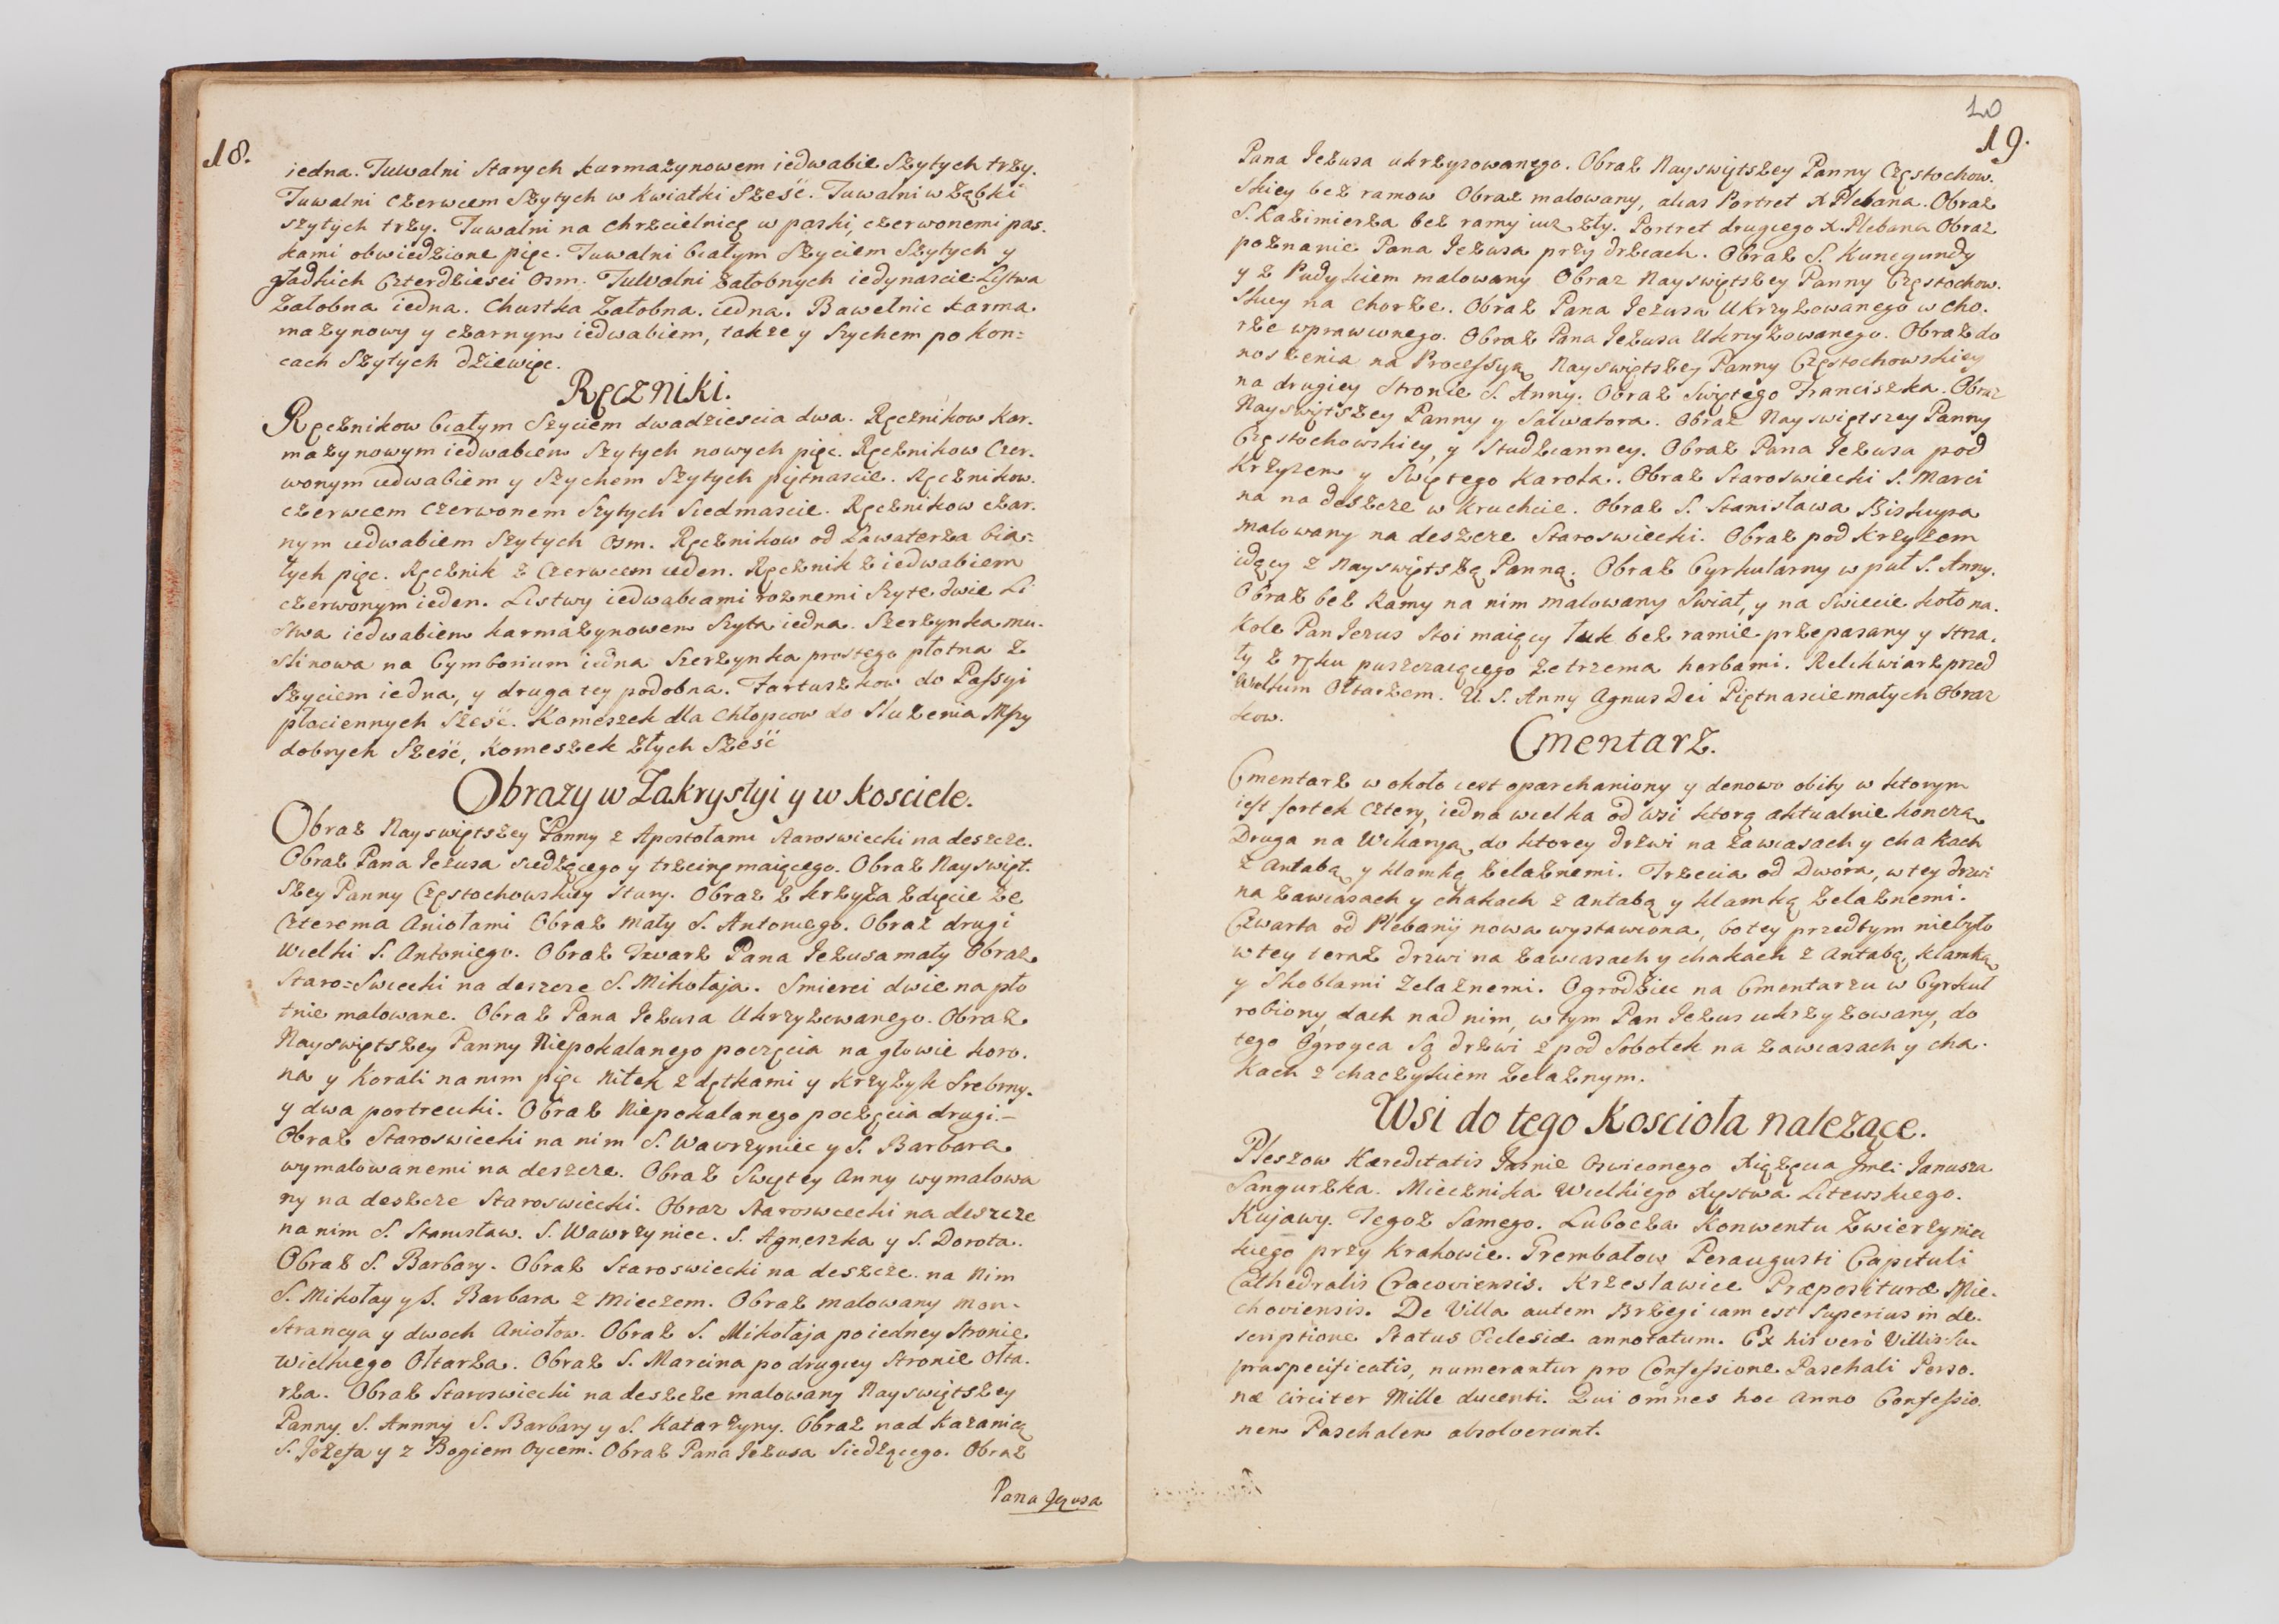 18.
iedna. Tuwalni Starych karmazynowem iedwabie Szytych trzy.
Tuwalni Czerwcem Szytych w Kwiatki Sześć. Tuwalni w Ząbki
szytych trzy. Tuwalni na Chrzcielnicę w paski, czerwonemi pas.
kami obwiedzione pięc. Tuwalni białym Szyciem Szytych y
gładkich Czterdziesci Osm. Tuwalni Załobnych iedynascie. Listwa
Załobna iedna. Chustka Załobna iedna. Bawełnic karma.
mazynowy y czarnym iedwabiem, także y Szychem po kon=
cach Szytych dziewięc.
Ręczniki.
Ręcznikow białym Szyciem dwadziescia dwa. Ręcznikow kar.
mazynowym iedwabiem Szytych nowych pięc. Ręcznikow Czer.
wonym iedwabiem y Szychem Szytych piętnascie. Ręcznikow
czerwcem Czerwonem Szytych Siedmascie. Ręcznikow czar.
nym iedwabiem Szytych Osm. Ręcznikow od Lawaterza bia=
łych pięc. Ręcznik z Czerwcem ieden. Ręcznik z iedwabiem
czerwonym ieden. Listwy iedwabiami roznemi Szyte dwie Li
stwa iedwabiem karmazynowem Szyta iedna. Szerzynka mu.
slinowa na Cymborium iedna Szerzynka prostego płotna z
Szyciem iedna, y druga tey podobna. Fartuszkow do Passyi
płociennych Sześć. Komeszek dla Chłopcow do Służenia Mszy
dobrych Sześć, Komeszek złych Sześć
Obrazy w Zakrystyi y w Kosciele.
Obraz Nayswiętszey Panny z Apostołami staroswiecki na deszcze.
Obraz Pana Jezusa siedzącego y trzcinę maiącego. Obraz Nayswięt.
szey Panny Częstochowskiey stary. Obraz z krzyża zdięcie ze
Czterema Aniołami Obraz mały S. Antoniego. Obraz drugi
Wielki S. Antoniego. Obraz Twarz Pana Jezusa mały Obraz
Staro=Swiecki na deszcze S. Mikołaja. Smierci dwie na pło
tnie malowane. Obraz Pana Jezusa Ukrzyzowanego. Obraz
Nayswiętszey Panny Niepokalanego poczęcia na głowie koro.
na y Korali na nim pięc Nitek z dętkami y Krzyżyk Srebrny.
y dwa portreciki. Obraz Niepokalanego poczęcia drugi.
Obraz Staroswiecki na nim S. Wawrzyniec y S. Barbara
wymalowanemi na deszcze. Obraz Swiętey Anny wymalowa
ny na deszcze Staroswiecki. Obraz Staroswiecki na deszcze
na nim S. Stanisław. S. Wawrzyniec. S. Agneszka y S. Dorota.
Obraz S. Barbary. Obraz Staroswiecki na deszcze na nim
S. Mikołay y S. Barbara z Mieczem. Obraz malowany Mon.
strancya y dwoch Aniołow. Obraz S. Mikołaja po iedney Stronie
Wielkiego Ołtarza. Obraz S. Marcina po drugiey Stronie Ołta.
rza. Obraz Staroswiecki na deszcze malowany Nayswiętszey
Panny S. Annny S. Barbary y S. Katarzyny. Obraz nad kazanicą
S. Jozefa y z Bogiem Oycem. Obraz Pana Jezusa Siedzącego. Obraz
Pana Jezusa
20
19.
Pana Jezusa ukrzyzowanego. Obraz Nayswiętszey Panny Częstochow.
skiey bez ramow Obraz malowany, alias Portret X Plebana. Obraz
S. Kazimierza bez ramy iuz zły. Portret drugiego X. Plebana Obraz
poznanie Pana Jezusa przy drzciach. Obraz S. Kunegundy
y z Pudykiem malowany Obraz Nayswiętszey Panny Częstochow.
skiey na Chorze. Obraz Pana Jezusa Ukrzyżowanego w Cho.
rze wprawionego. Obraz Pana Jezusa Ukrzyżowanego. Obraz do
noszenia na Processyą Nayswiętszey Panny Częstochowskiey
na drugiey Stronie S. Anny. Obraz Swiętego Franciszka. Obraz
Nayswiętszey Panny y Salwatora. Obraz Nayswiętszey Panny
Częstochowskiey, y Studzianney. Obraz Pana Jezusa pod
Krzyżem y Swiętego Karola. Obraz Staroswiecki S. Marci
na na deszcze w Kruchcie. Obraz S. Stanisława Biskupa
malowany na deszcze Staroswiecki. Obraz pod Krzyżem
idący z Nayswiętszą Panną. Obraz Cyrkularny w puł S. Anny.
Obraz bez Ramy na nim malowany Swiat, y na Swiecie koło na.
Kole Pan Jezus Stoi maiący łuk bez ramie przepasany y strza.
ły z ręku puszczaiącego ze trzema herbami. Relikwiarz przed
Wielkim Ołtarzem. U S. Anny Agnus Dei Piętnascie małych Obraz
kow.
Cmentarz.
Cmentarz w około iest oparchaniony y denowo obity w ktorym
iest fortek Cztery, iedna wielka od Wsi ktorą aktualnie konczą
Druga na Wikaryą do ktorey drzwi na zawiasach y chakach
z Antabą y klamką żelaznemi. Trzecia od Dwora, w tey drzwi
na zawiasach y chakach z Antabą y klamką żelaznemi.
Czwarta od Plebanij nowa wystawiona, bo tey przedtym niebyło
w tey teraz drzwi na zawiasach y chakach z Antabą, klamką
y Skoblami żelaznemi. Ogrodziec na Cmentarzu w Cyrkuł
robiony, dach nad nim, w tym Pan Jezus ukrzyzowany, do
tego Ogroyca Są drzwi z pod Sobotek na zawiasach y cha.
kach z chaczykiem żelaznym.
Wsi do tego Koscioła nalezące.
Pleszow Hæreditatis Jasnie Oswieconego Xiążęcia Jmci Janusza
Sanguszka. Miecznika Wielkiego Xięstwa Litewskiego.
Kujawy. Tegoz Samego. Lubocza Konwentu Zwierzyniec
kiego przy Krakowie. Grembałow Peraugusti Capituli
Cathedralis Cracoviensis. Krzesławice Præposituræ Mie.
choviensis. De Villa autem Brzegi iam est Superius in de.
scriptione Status Ecclesiæ annotatum. Ex his verò Villis Su.
praspecificatis, numerantur pro Confessione Paschali Perso.
næ Circiter Mille ducenti. Qui omnes hoc Anno Confessio.
nem Paschalem absolverunt.